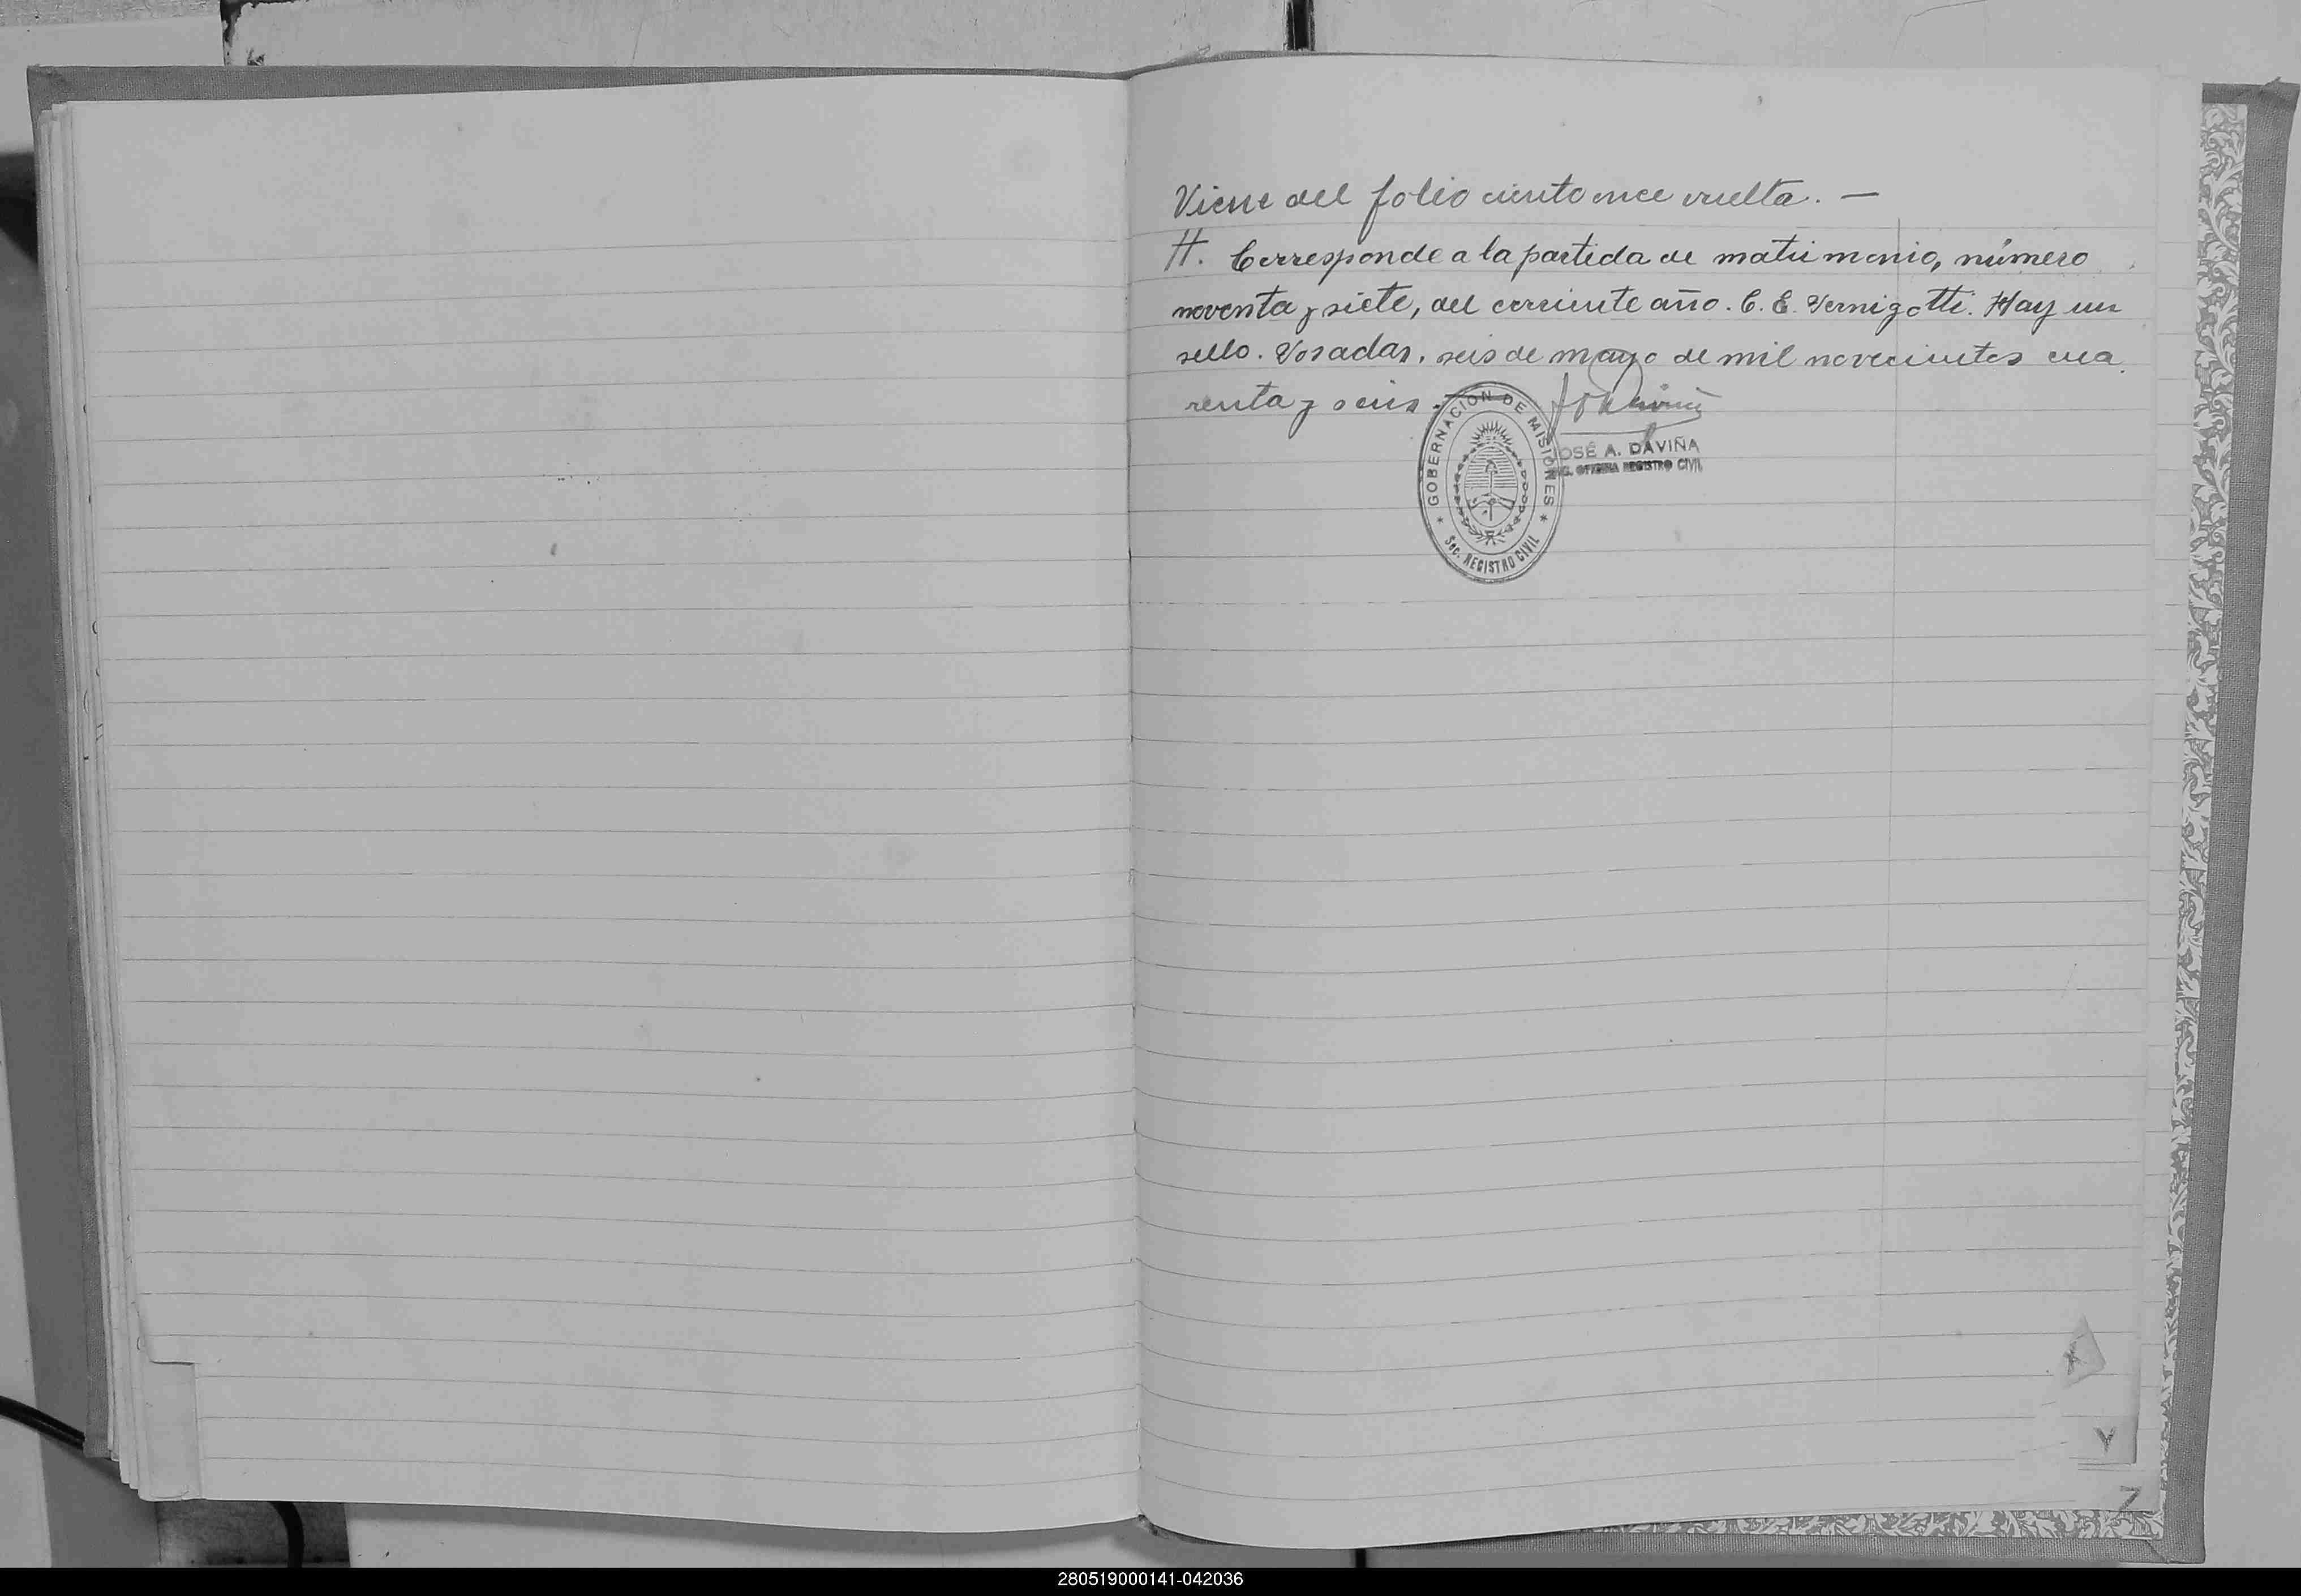 Viene del folio ciento once vuelta. —
H. Corresponde a la partida de matrimonio, número
noventa y siete, del corriente año. C. E. Vernigotti. Hay un
sello. Posadas, seis de mayo de mil novecientos cua
renta y seis.-
GOBERNACION DE MISIONES
Sec. REGISTRO CIVIL
JOSÉ A. DAVIÑA
OFICINA REGISTRO CIVIL
Y
Z
280519000141-042036